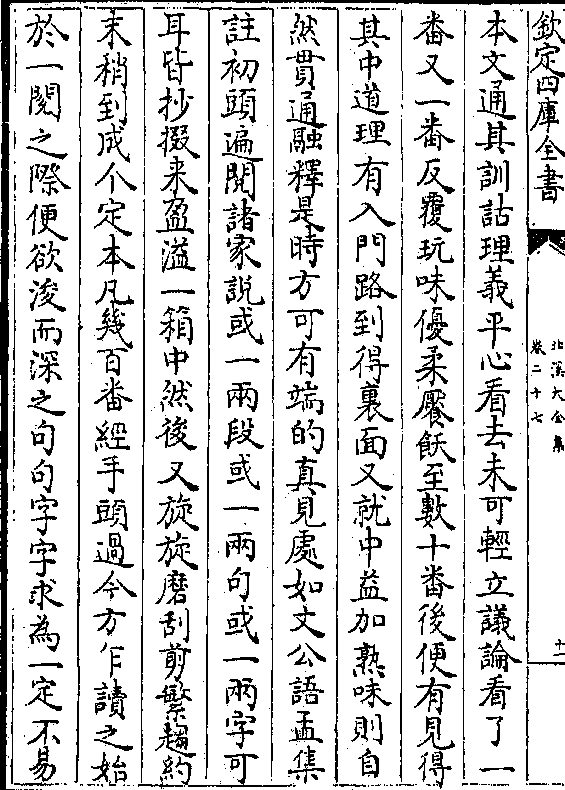 欽定四庫全書
北溪大全集
卷二十七
十一
本文通其訓詁理義平心看去未可輕立議論看了一
番又一番反覆玩味優柔饜飫至數十番後便有見得
其中道理有入門路到得裏面又就中益加熟味則自
然貫通融釋是時方可有端的真見處如文公語孟集
註初頭遍閱諸家說或一兩段或一兩句或一兩字可
耳皆抄掇来盈溢一箱中然後又旋旋磨刮剪繁趨約
末稍到成个定本凡幾百番經手頭過今方乍讀之始
於一閱之際便欲浚而深之句句字字求為一定不易